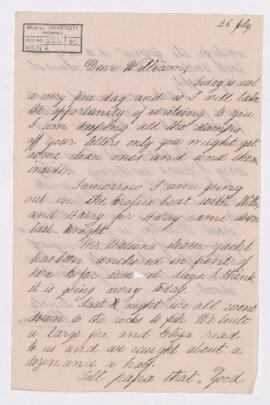 McGILL UNIVERSITY
ARCHIVES
ACC. NO.
REF.
26 July
Dear William
Today is not
a very fine day and so I will take
the opportunity of writing to you.
I am keeping all the stamps
off your letters only you might get
some clean ones and send them
inside.
Tomorrow I am going
out in the boat with Willy
and Harry for Harry came down
last night
Mr. steam-yacht
has been anchored in front of
here for days. I think
it is going away today.
Last night we all went
down to the rocks to fish. We built
a large fire and Eliza read
to us and we caught about a
dozen and a half.
Tell papa that "Good